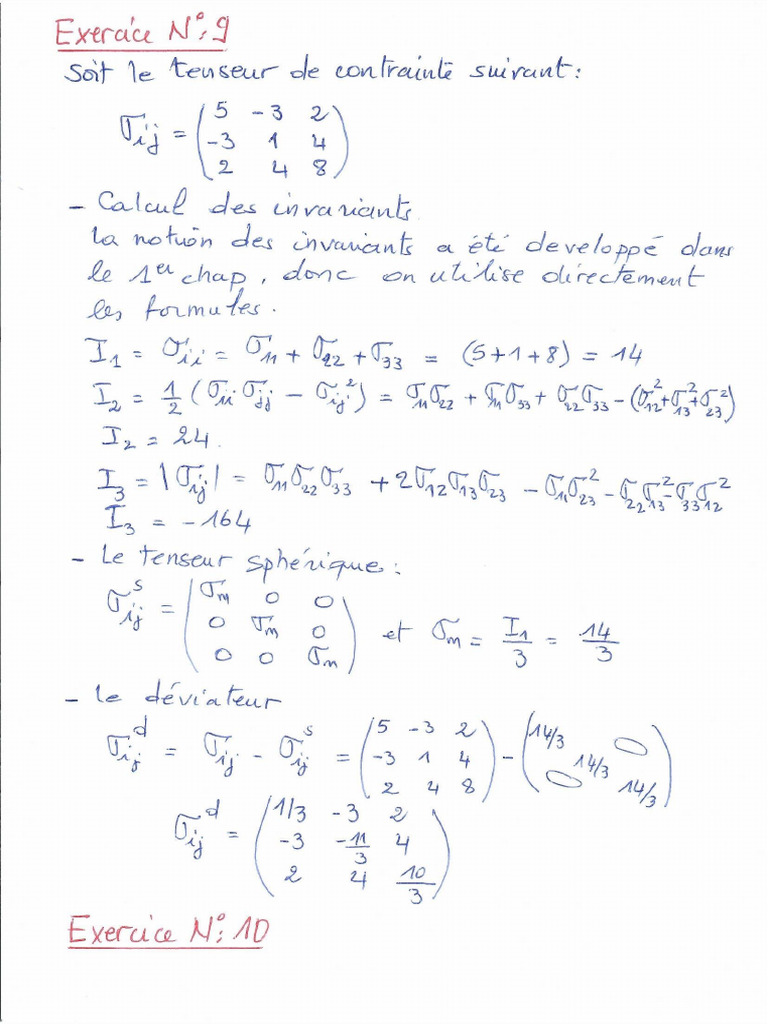 Exercice N°:9
Soit le tenseur de contrainte suivant:
σij = (5 -3 2
-3 1 4
2 4 8)
- Calcul des invariants.
la notion des invariants a été developpé dans
le 1er chap, donc on utilise directement
les formules.
I1 = σii = σ11 + σ22 + σ33 = (5+1+8) = 14
I2 = 1/2 (σii σjj - σij²) = σ11σ22 + σ11σ33 + σ22σ33 - (σ12² + σ13² + σ23²)
I2 = 24.
I3 = |σij| = σ11σ22σ33 + 2σ12σ13σ23 - σ11σ23² - σ22σ13² - σ33σ12²
I3 = -164
- Le tenseur sphérique:
σij^s = (σm 0 0
0 σm 0
0 0 σm) et σm = I1/3 = 14/3
- le déviateur
σij^d = σij - σij^s = (5 -3 2
-3 1 4
2 4 8) - (14/3 0
14/3
0 14/3)
σij^d = (1/3 -3 2
-3 -11/3 4
2 4 10/3)
Exercice N°:10